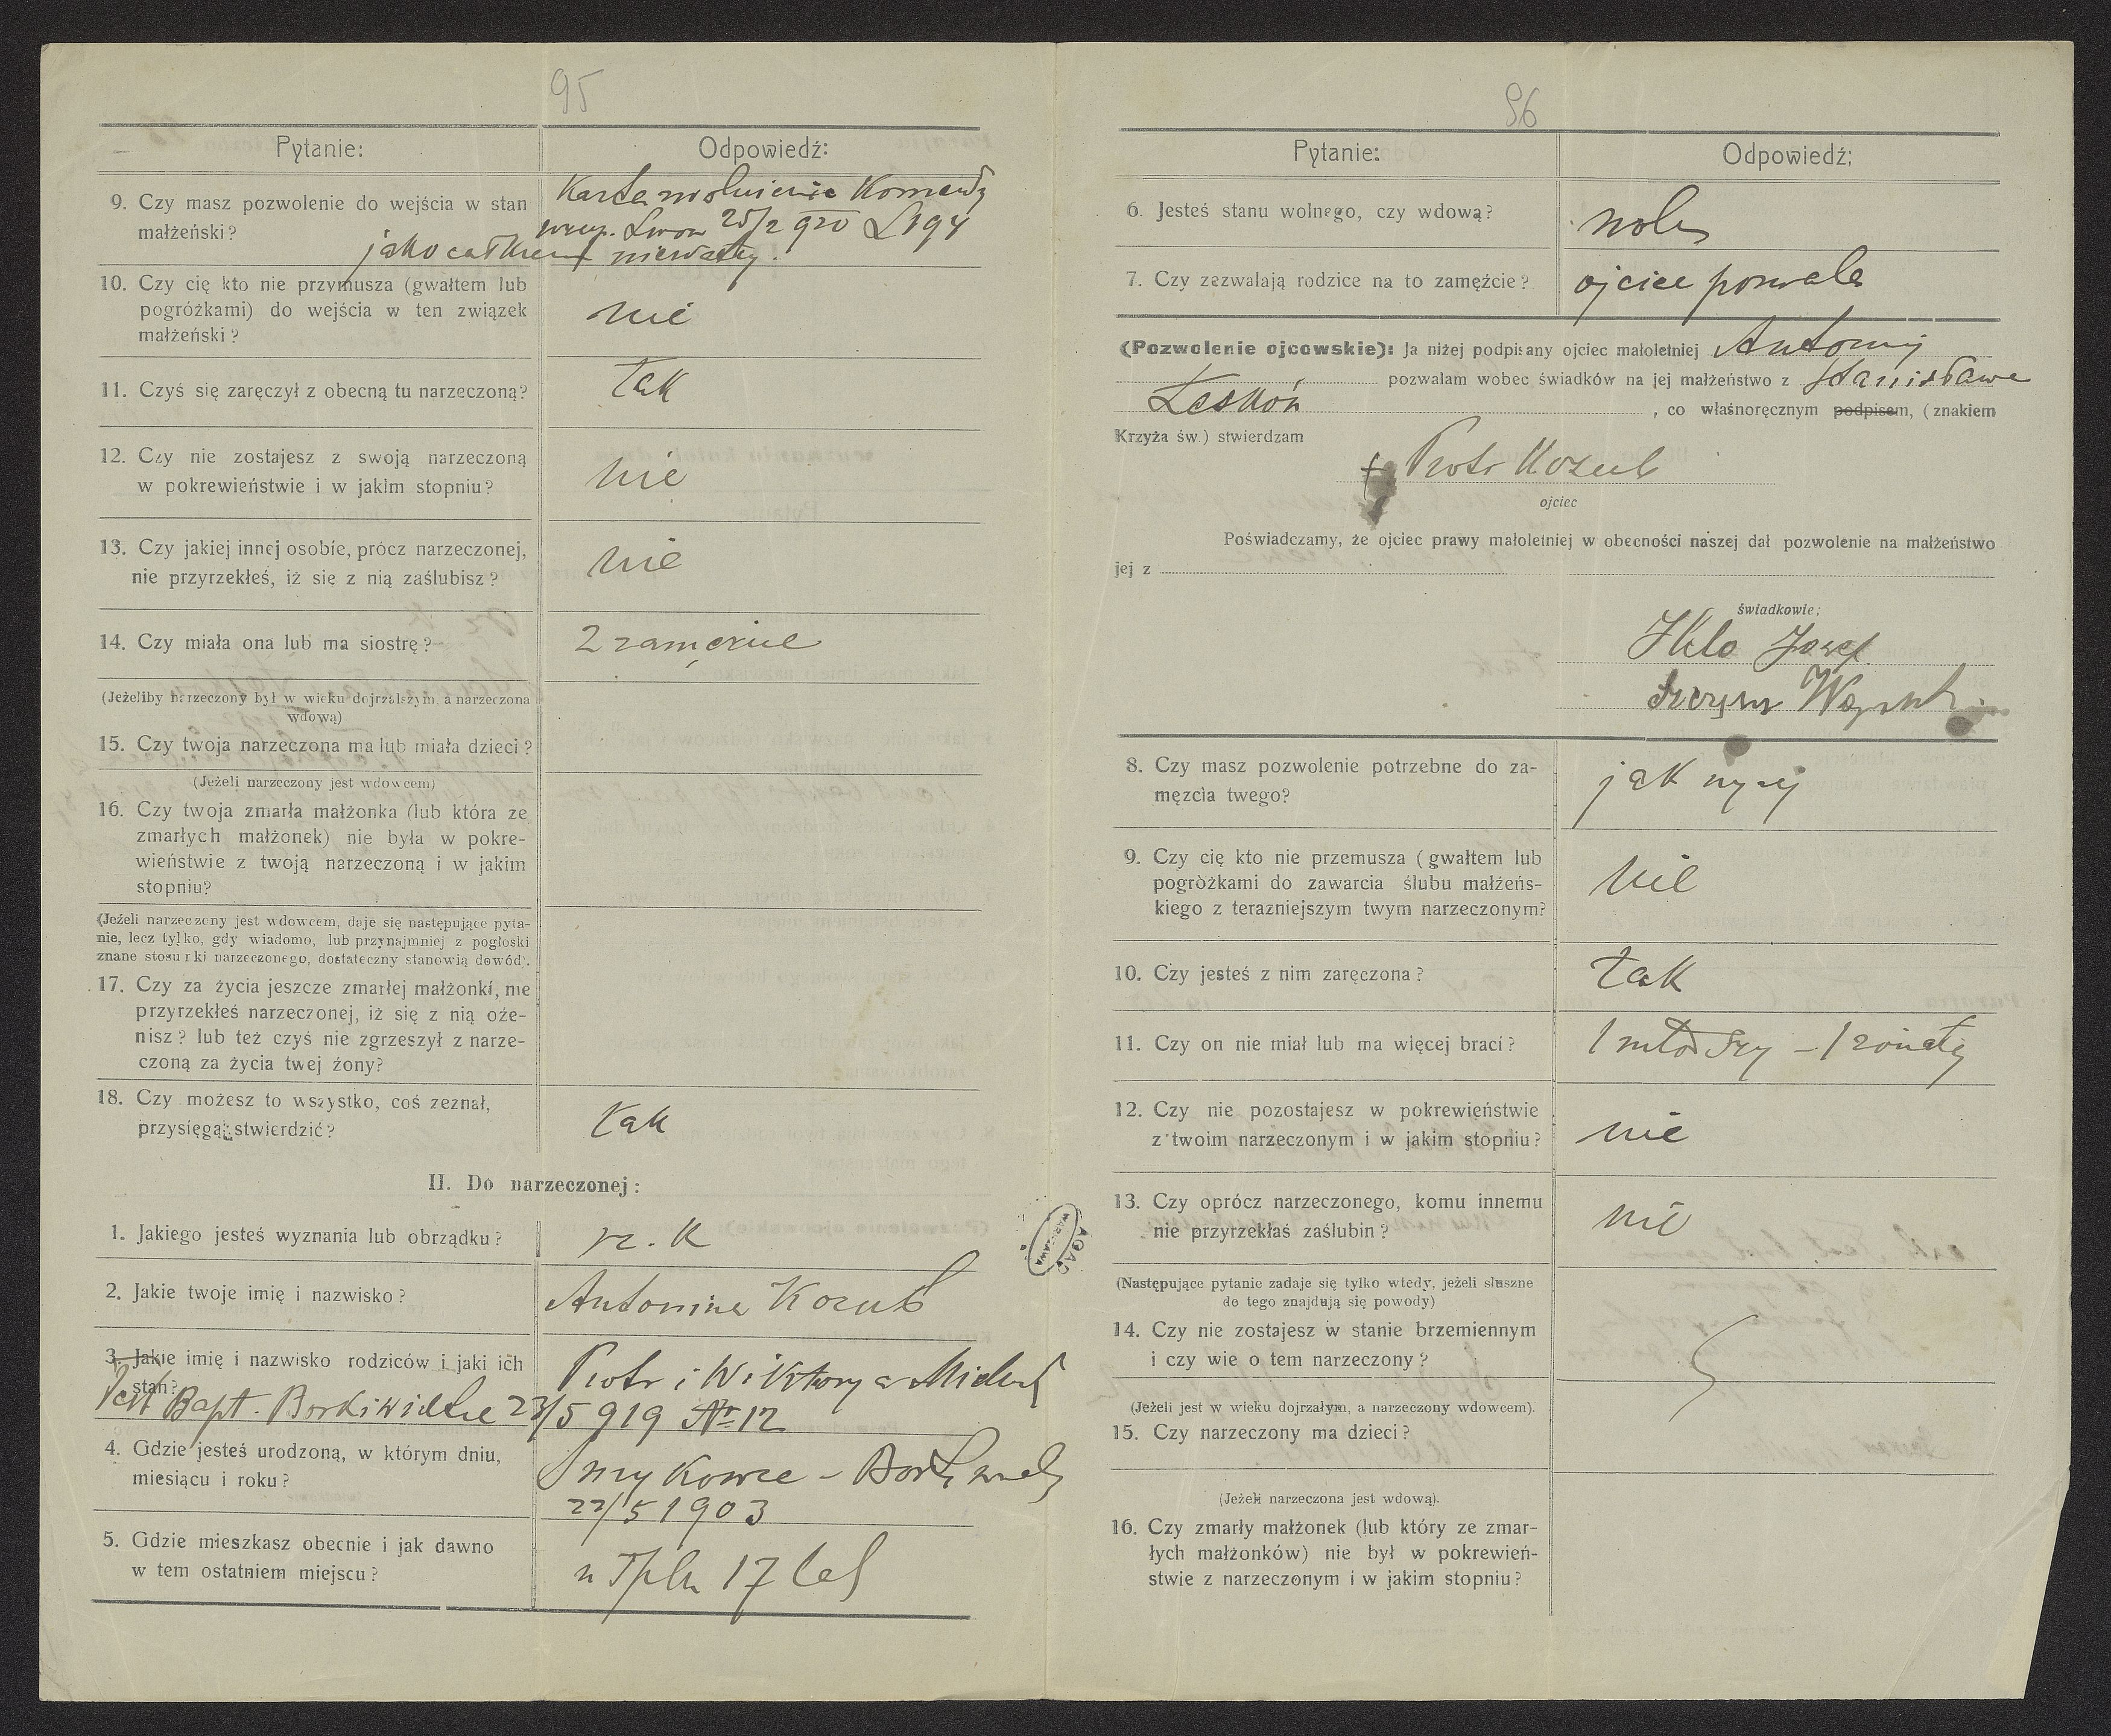 95
Pytanie:
Odpowiedź:
9. Czy masz pozwolenie do wejścia w stan
małżeński?
Karta zwolnienia Komendy
uzup. Lwow 25/2 920 L 194
jako całkiem niezdatny.
10. Czy cię kto nie przymusza (gwałtem lub
pogróżkami) do wejścia w ten związek
małżeński?
nie
11. Czyś się zaręczył z obecną tu narzeczoną?
tak
12. Czy nie zostajesz z swoją narzeczoną
w pokrewieństwie i w jakim stopniu?
nie
13. Czy jakiej innej osobie, prócz narzeczonej,
nie przyrzekłeś, iż się z nią zaślubisz?
nie
14. Czy miała ona lub ma siostrę?
2 zamężne
(Jeżeliby narzeczony był w wieku dojrzalszym, a narzeczona
wdową)
15. Czy twoja narzeczona ma lub miała dzieci?
(Jeżeli narzeczony jest wdowcem)
16. Czy twoja zmarła małżonka (lub która ze
zmarłych małżonek) nie była w pokre-
wieństwie z twoją narzeczoną i w jakim
stopniu?
(Jeżeli narzeczony jest wdowcem, daje się następujące pyta-
nie, lecz tylko, gdy wiadomo, lub przynajmniej z pogłoski
znane stosunki narzeczonego, dostateczny stanowią dowód).
17. Czy za życia jeszcze zmarłej małżonki, nie
przyrzekłeś narzeczonej, iż się z nią oże-
nisz? lub też czyś nie zgrzeszył z narze-
czoną za życia twej żony?
18. Czy możesz to wszystko, coś zeznał,
przysięgą stwierdzić?
tak
II. Do narzeczonej:
1. Jakiego jesteś wyznania lub obrządku?
rz. k
2. Jakie twoje imię i nazwisko?
Antonina Kozub
3. Jakie imię i nazwisko rodziców i jaki ich
stan?
Piotr i Wiktorya
Test Bapt. Borki wielkie 23/5 919 Nr 12
4. Gdzie jesteś urodzoną, w którym dniu,
miesiącu i roku?
Smykowce - Borki wielk
22/5 1903
5. Gdzie mieszkasz obecnie i jak dawno
w tem ostatniem miejscu?
w Tplu 17 lat
AGAD
WARSZAWA
96
Pytanie:
Odpowiedź:
6. Jesteś stanu wolnego, czy wdową?
wolny
7. Czy zezwalają rodzice na to zamęźcie?
ojciec pozwala
(Pozwolenie ojcowskie): Ja niżej podpisany ojciec małoletniej Antoniny
pozwalam wobec świadków na jej małżeństwo z Stanisława
Leskóń, co właśnoręcznym podpisem, (znakiem
Krzyża św.) stwierdzam
+ Piotr Kozub
ojciec
Poświadczamy, że ojciec prawy małoletniej w obecności naszej dał pozwolenie na małżeństwo
jej z
świadkowie:
Józef
8. Czy masz pozwolenie potrzebne do za-
męzcia twego?
jak wyżej
9. Czy cię kto nie przemusza (gwałtem lub
pogròżkami do zawarcia ślubu małżeńs-
kiego z terazniejszym twym narzeczonym?
nie
10. Czy jesteś z nim zaręczona?
tak
11. Czy on nie miał lub ma więcej braci?
1 młodszy - 1 żonaty
12. Czy nie pozostajesz w pokrewieństwie
z twoim narzeczonym i w jakim stopniu?
nie
13. Czy oprócz narzeczonego, komu innemu
nie przyrzekłaś zaślubin?
nie
(Następujące pytanie zadaje się tylko wtedy, jeżeli słuszne
do tego znajdują się powody)
14. Czy nie zostajesz w stanie brzemiennym
i czy wie o tem narzeczony?
(Jeżeli jest w wieku dojrzałym, a narzeczony wdowcem).
15. Czy narzeczony ma dzieci?
(Jeżeli narzeczona jest wdową).
16. Czy zmarły małżonek (lub który ze zmar-
łych małżonków) nie był w pokrewień-
stwie z narzeczonym i w jakim stopniu?